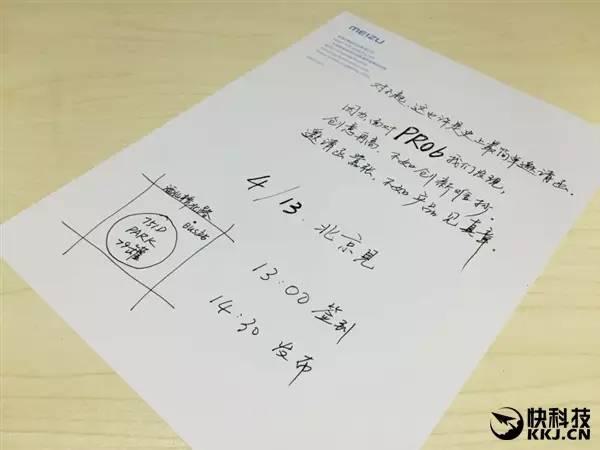 MEIZU
对不起,这也许是史上最简单邀请函。
因为,面对PRO6我们发现,
创意再高、不如创新难抄。
邀请函嚣张、不如产品见真章。
4/13. 北京見
13:00 签到
14:30 发布
酒仙桥北路
751D
PARK
79罐
快科技
KKJ.CN